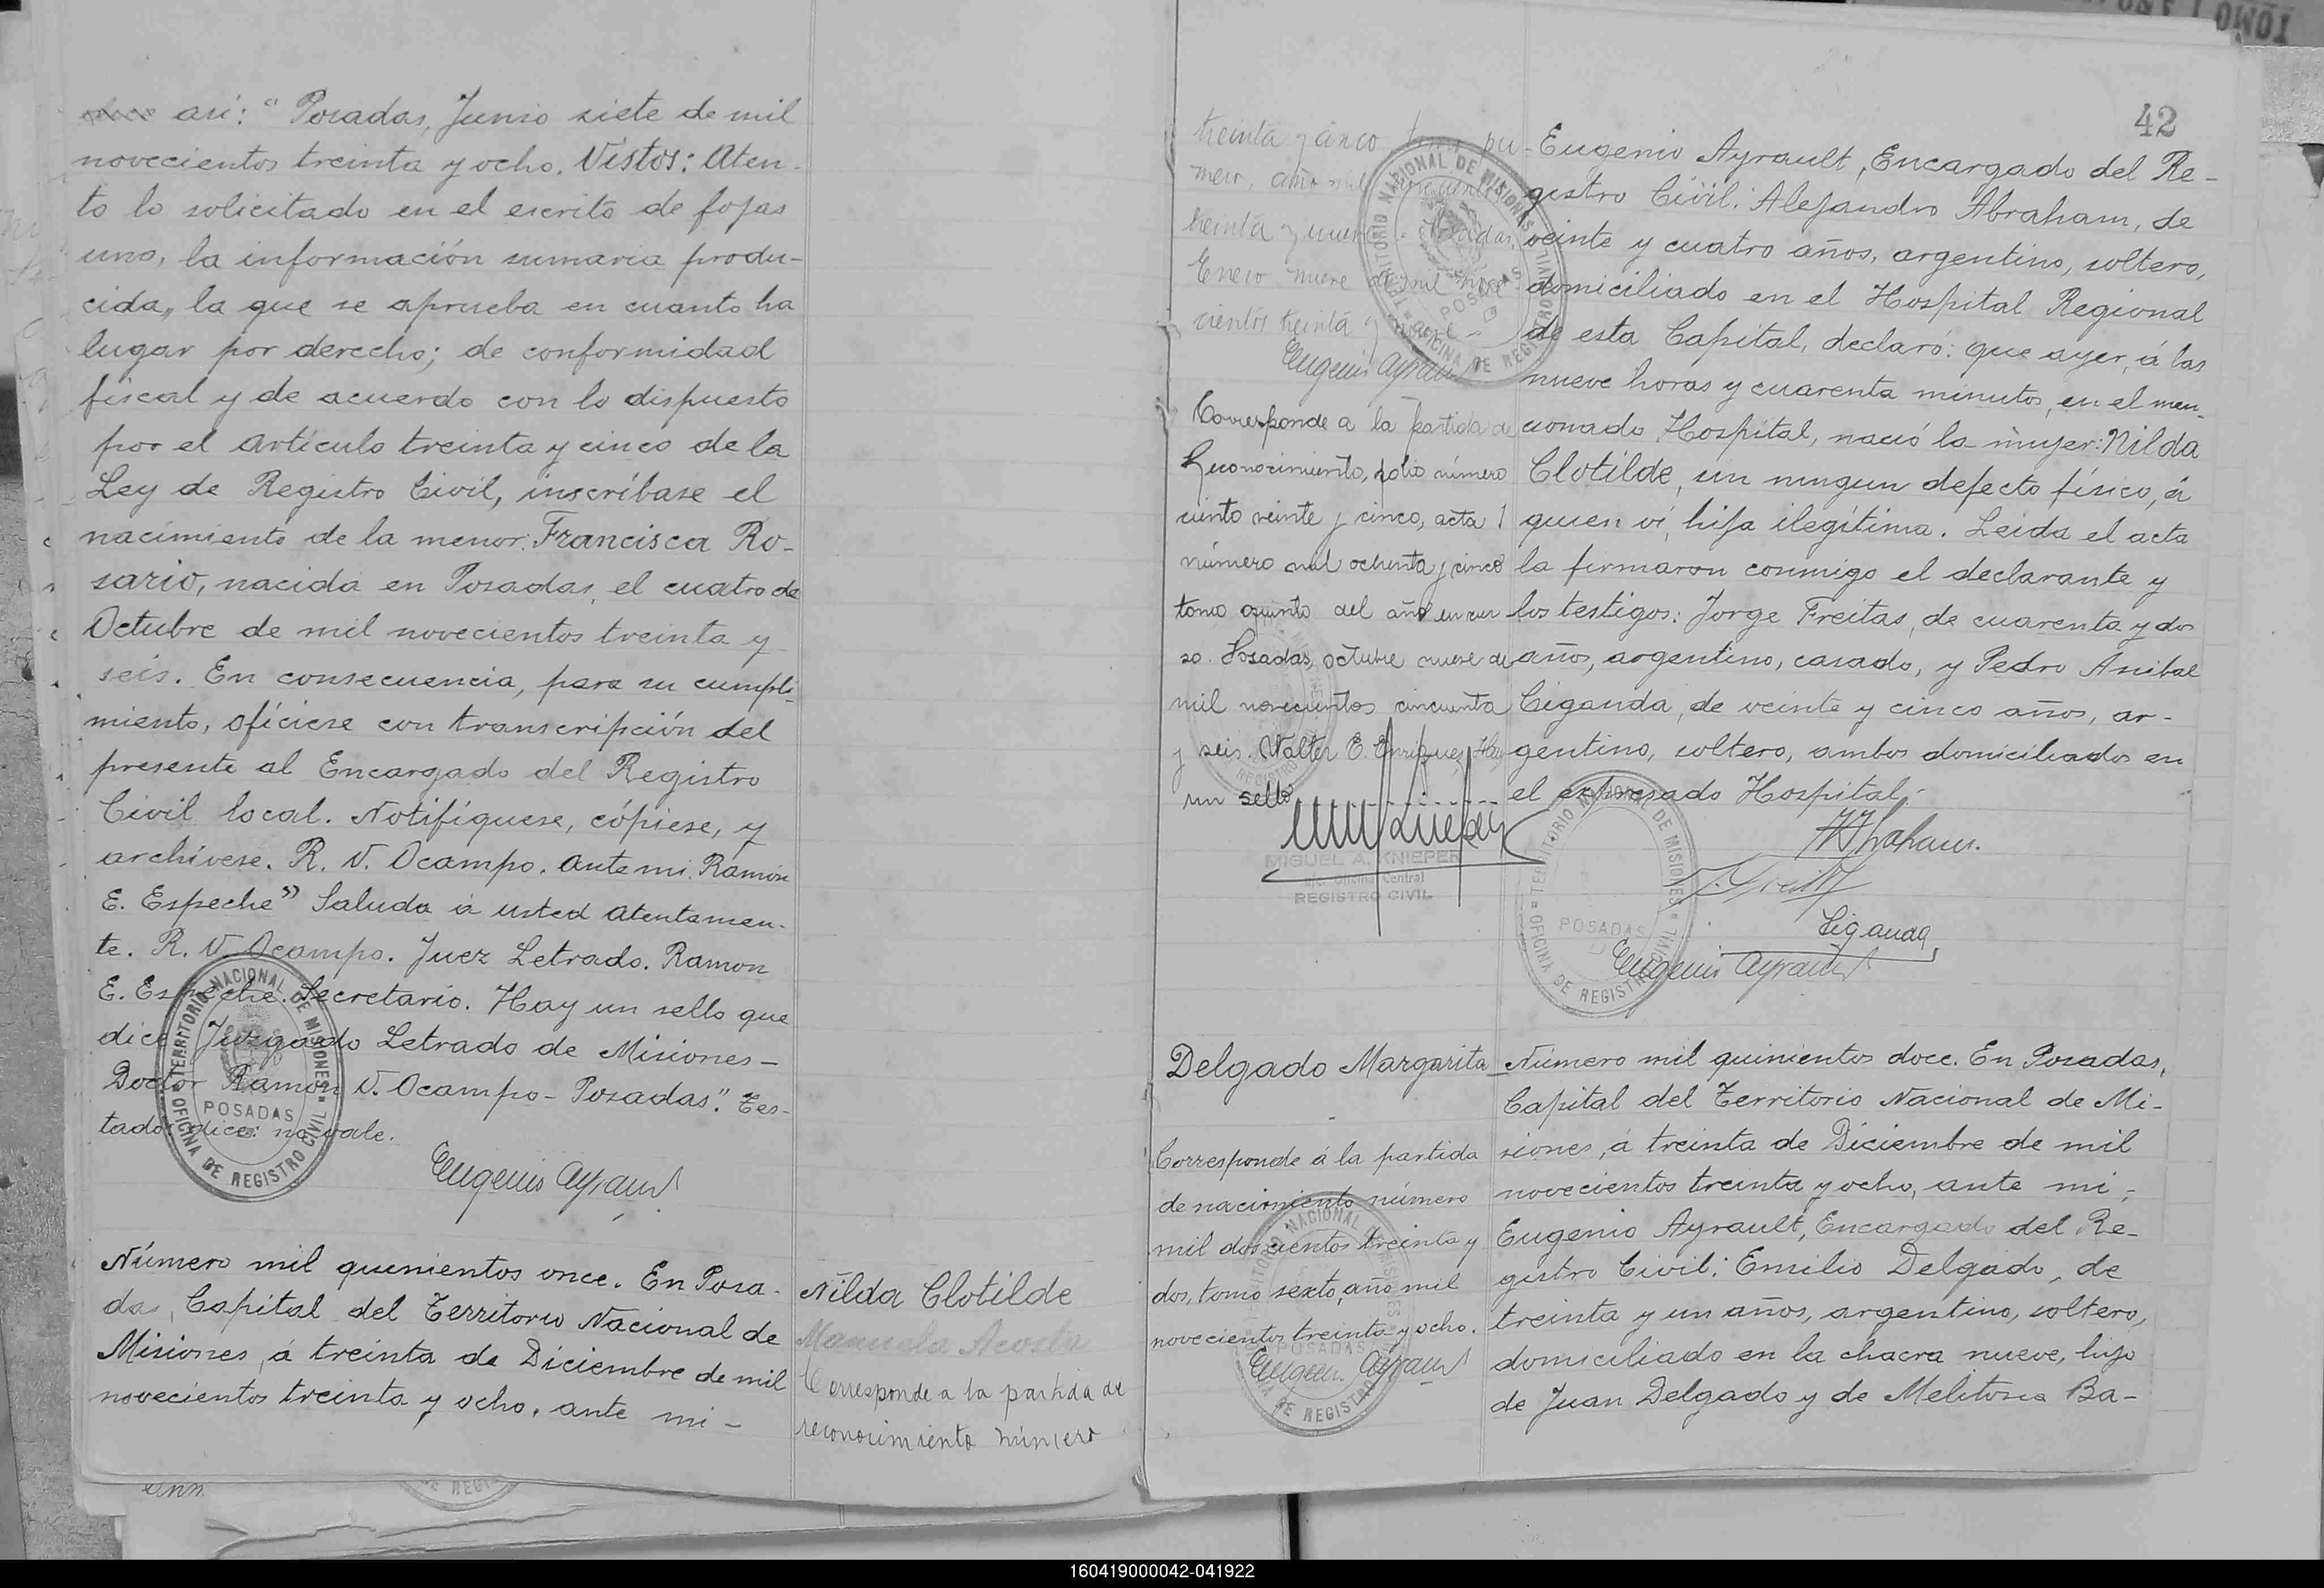 así: "Posadas, Junio siete de mil
novecientos treinta y ocho. Vistos: Aten-
to lo solicitado en el escrito de fojas
uno, la información sumaria produ-
cida, la que se aprueba en cuanto ha
lugar por derecho; de conformidad
fiscal y de acuerdo con lo dispuesto
por el artículo treinta y cinco de la
Ley de Registro Civil, inscríbase el
nacimiento de la menor: Francisca Ro-
sario, nacida en Posadas, el cuatro de
Octubre de mil novecientos treinta y
seis. En consecuencia, para su cumpli-
miento, ofíciese con transcripción del
presente al Encargado del Registro
Civil local. Notifíquese, cópiese, y
archívese. R. V. Ocampo. Ante mi. Ramón
E. Espeche" Saluda á usted atentamen-
te. R. V. Ocampo. Juez Letrado. Ramon
E. Espeche. Secretario. Hay un sello que
dice Juzgado Letrado de Misiones-
Doctor Ramón V. Ocampo - Posadas". Tes-
tado: dice: no vale.
TERRITORIO NACIONAL DE MISIONES
POSADAS
OFICINA DE REGISTRO CIVIL
Eugenio Ayrault
Número mil quinientos once. En Posa-
das, Capital del Territorio Nacional de
Misiones, á treinta de Diciembre de mil
novecientos treinta y ocho, ante mi-
Nilda Clotilde
Manuela Acosta
Corresponde a la partida de
reconocimiento número
42
treinta y cinco
año mil
treinta y nueve. Posadas,
Enero nueve de mil nove-
cientos treinta y nueve-
Eugenio Ayrault
TERRITORIO NACIONAL DE MISIONES
POSADAS
OFICINA DE REGISTRO CIVIL
Corresponde a la partida de
Reconocimiento, folio número
ciento veinte y cinco, acta
número mil ochenta y cinco
tomo quinto del año en cur
so. Posadas, octubre nueve de
mil novecientos cincuenta
y seis. Walter E. Enriquez. Hay
un sello
MIGUEL A. KNIEPER
Oficina Central
REGISTRO CIVIL
Eugenio Ayrault, Encargado del Re-
gistro Civil: Alejandro Abraham, de
veinte y cuatro años, argentino, soltero,
domiciliado en el Hospital Regional
de esta Capital, declaró: que ayer, á las
nueve horas y cuarenta minutos, en el men-
cionado Hospital, nació la mujer: Nilda
Clotilde, sin ningun defecto físico, á
quien ví, hija ilegítima. Leida el acta
la firmaron conmigo el declarante y
los testigos: Jorge Freitas, de cuarenta y dos
años, argentino, casado, y Pedro Anibal
Ciganda, de veinte y cinco años, ar-
gentino, soltero, ambos domiciliados en
el expresado Hospital.-
Abraham.
J. Freitas
Ciganda
Eugenio Ayrault
TERRITORIO NACIONAL DE MISIONES
POSADAS
OFICINA DE REGISTRO CIVIL
Delgado Margarita
Corresponde á la partida
de nacimiento número
mil doscientos treinta y
dos, tomo sexto, año mil
novecientos treinta y ocho.
Eugenio Ayrault
POSADAS
Número mil quinientos doce. En Posadas,
Capital del Territorio Nacional de Mi-
siones, á treinta de Diciembre de mil
novecientos treinta y ocho, ante mi,
Eugenio Ayrault, Encargado del Re-
gistro Civil: Emilio Delgado, de
treinta y un años, argentino, soltero,
domiciliado en la chacra nueve, hijo
de Juan Delgado y de Melitona Ba-
160419000042-041922